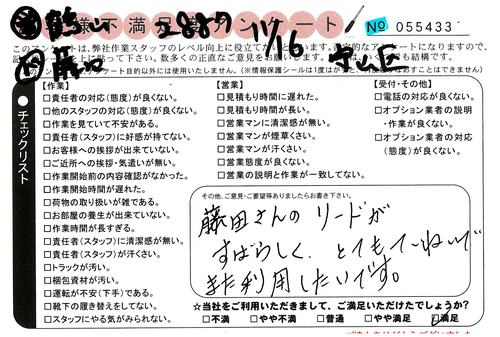 様不満足度アンケート
2887 11/16
No 055433
このアンケートは、弊社作業スタッフのレベル向上に役立てたい
チェックリスト
【作業】
□責任者の対応(態度)が良くない。
□他のスタッフの対応(態度)が良くない。
□作業を見ていて不安がある。
□責任者(スタッフ)に好感が持てない。
□お客様への挨拶が出来ていない。
□ご近所への挨拶・気遣いが無い。
□作業開始前の内容確認がなかった。
□作業開始時間が遅れた。
□荷物の取り扱いが雑である。
□お部屋の養生が出来ていない。
□作業時間が長すぎる。
□責任者(スタッフ)に清潔感が無い。
□責任者(スタッフ)が汗くさい。
□トラックが汚い。
□梱包資材が汚い。
□運転が不安(下手)である。
□靴下の履き替えをしてない。
□スタッフにやる気がみられない。
【営業】
□見積もり時間に遅れた。
□見積もり時間が長い。
□営業マンに清潔感が無い。
□営業マンが煙草くさい。
□営業マンが汗くさい。
□営業態度が良くない。
□営業の説明と作業が一致してない。
【受付・その他】
□電話の対応が良くない。
□オプション業者の説明
・作業が良くない。
□オプション業者の対応
(態度)が良くない。
その他、ご意見・ご要望等ありましたらお書き下さい。
藤田さんのリードが
すばらしく、とてもていねいで
また利用したいです。
☆当社をご利用いただきまして、ご満足いただけたでしょうか?
□不満 □やや不満 □普通 □やや満足 □満足